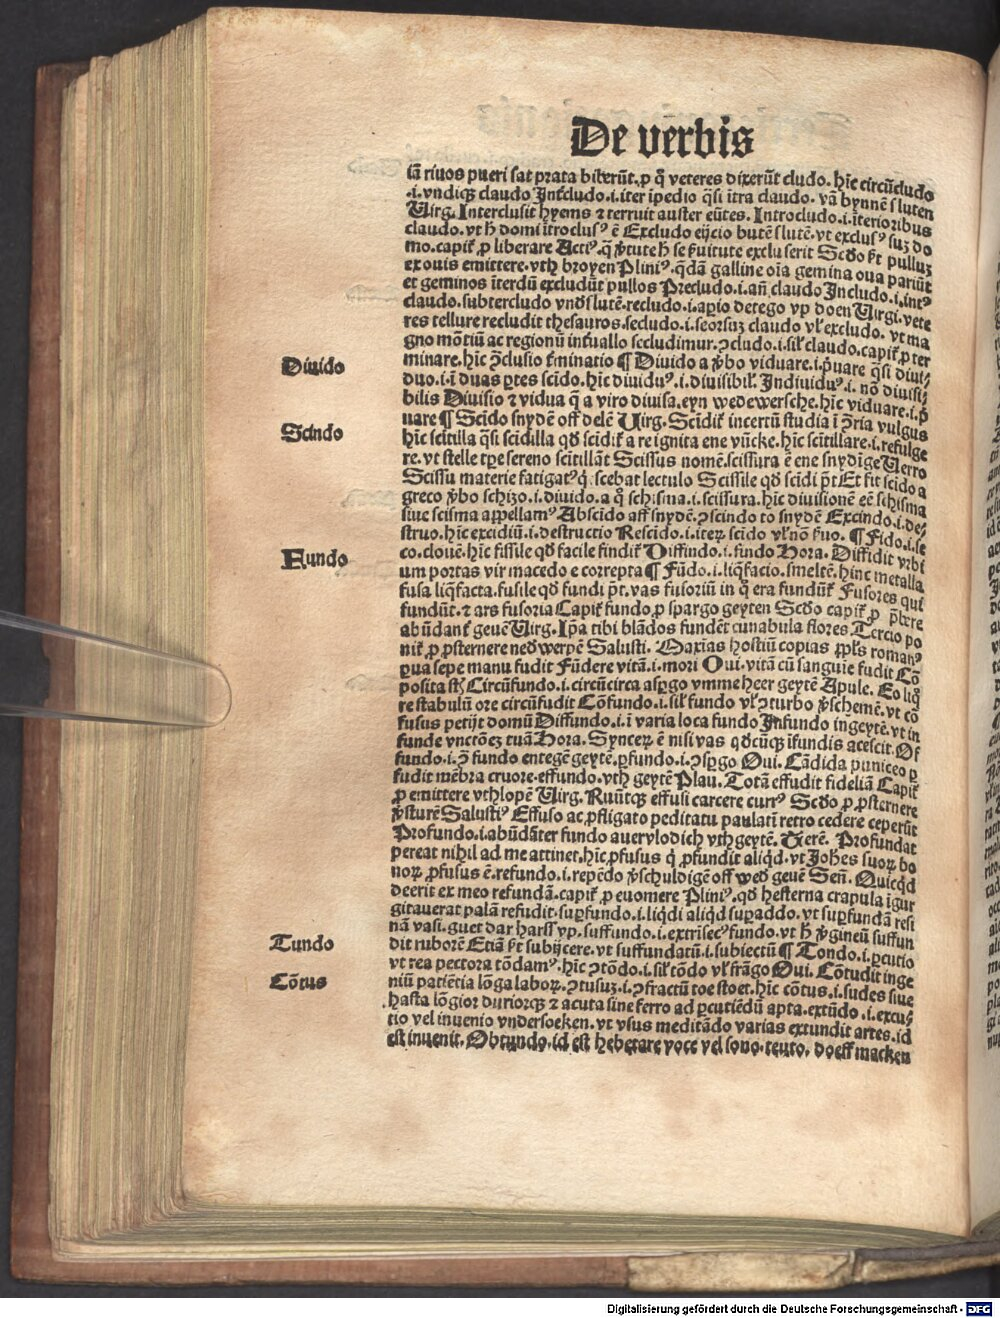 De verbis
iã riuos pueri sat prata biberũt. ꝓ q̃ veteres dixerũt cludo. hĩc circũcludo
.i. vndiqꝫ claudo Intcludo .i. iter ĩpedio q̃si ĩtra claudo. vã bynnẽ sluten
Uirg. Interclusit hyems ⁊ terruit auster eũtes. Introcludo .i. ĩterioribus
claudo. vt h̃ domi ĩtroclusꝰ ẽ Excludo eijcio butẽ slutẽ. vt exclusꝰ suꝫ do
ex ouis emittere. vth broyen Pliniꝰ. q̃dã galline oĩa gemina oua pariũt
et geminos ĩterdũ excludũt pullos Precludo .i. añ claudo Includo .i. intꝰ
claudo. subtercludo vnd slutẽ. recludo .i. apio detego vp doen Uirgi. vete
res tellure recludit thesauros. secludo .i. seorsuꝫ claudo vł excludo. vt ma
gno mõtiũ ac regionũ interuallo secludimur. ↄcludo .i. sił claudo. capit̃ ꝓ ter
Diuido
minare. hĩc ↄ̃clusio t̃minatio ¶ Diuido a ꝟbo viduare .i. p̃uare q̃si diui⸗
duo .i. ĩ duas ꝑtes scĩdo. hĩc diuiduꝰ .i. diuisibił. Indiuiduꝰ .i. nõ diuisi⸗
bilis Diuisio ⁊ vidua q̃ a viro diuisa. eyn wedewersche. hĩc viduare .i. p̃
Scindo
uare ¶ Scĩdo snydẽ off delẽ Uirg. Scĩdit̃ incertũ studia ĩ ↄ̃ria vulgus
hĩc scĩtilla q̃si scĩdilla qð scĩdit̃ a re ignita ene vũcke. hĩc scĩtillare .i. refulge
re. vt stelle tꝑe sereno scĩtillãt Scissus nomẽ. scissura ẽ ene snydĩge Uerro
Scissu materie fatigatꝰ q̃scebat lectulo Scissile qð scĩdi p̃t Et fit scĩdo a
greco ꝟbo schizo .i. diuido. a q̃ schisma .i. scissura. hĩc diuisionẽ eẽ schisma
siue scisma appellamꝰ Abscĩdo aff snydẽ. ↄscindo to snydẽ Excindo .i. de⸗
struo. hĩc excidiũ .i. destructio Rescĩdo .i. iteꝝ scĩdo vł nõ ſ̃uo. ¶ Fido .i. se
Fundo
co. clouẽ. hĩc fissile qð facile findit̃ Diffindo .i. findo Hora. Diffidit vrbi
um portas vir macedo e correpta ¶ Fũdo .i. liq̃facio. smeltẽ. hinc metalla
fusa liq̃facta. fusile qð fundi p̃t. vas fusoriũ in q̃ era fundũt̃ Fusores qui
fundũt. ⁊ ars fusoria Capit̃ fundo ꝓ spargo geyten Scðo capit̃ ꝓ p̃bere
abũdant̃ geuẽ Uirg. Ip̃a tibi blãdos fundẽt cunabula flores Tercio po
nit̃ ꝓ ꝓsternere ned werpẽ Salusti. Maxĩas hostiũ copias ꝓpłs romanꝰ
ꝑua sepe manu fudit Fũdere vitã .i. mori Oui. vitã cũ sanguie fudit Cõ
posita st̃ Circũfundo .i. circũcirca aspgo vmmeheer geytẽ Apule. Eo liq̃
re stabulũ ore circũfudit Cõfundo .i. sił fundo vł ↄturbo ꝟschemẽ. vt cõ
fusus petijt domũ Diffundo .i. ĩ varia loca fundo Infundo ingeytẽ. vt in
funde vnctõeꝫ tuã Hora. Synceꝝ ẽ nisi vas qðcũqꝫ ĩfundis acescit. Of
fundo .i. ↄ̃ fundo entegẽ geytẽ. ꝑfundo .i. ↄspgo Oui. Cãdida puniceo ꝑ
fudit mẽbra cruore. effundo. vth geytẽ Plau. Totã effudit fideliã Capit̃
ꝓ emittere vthlopẽ Uirg. Ruũtqꝫ effusi carcere currꝰ Scðo ꝓ ꝓsternere
ꝟsturẽ Salustiꝰ Effuso ac ꝓfligato peditatu paulatĩ retro cedere ceperũt
Profundo .i. abũdãter fundo auervlodich vth geytẽ. Terẽ. Profundat
pereat nihil ad me attinet. hĩc ꝓfusus q̃ ꝓfundit aliqd. vt Johẽs suoꝝ bo
noꝝ ꝓfusus ẽ. refundo .i. repẽdo ꝟschuldigẽ off wed geuẽ Señ. Quicqd
deerit ex meo refundã. capit̃ ꝓ euomere Pliniꝰ. qð hesterna crapula ĩgur
gitauerat palã refudit. supfundo .i. liqdi aliqd supaddo. vt supfundã resi
nã vasi. guet dar harſſ vp. suffundo .i. extrĩsecꝰ fundo. vt h̃ ꝟgineũ suffun
Tundo
dit ruborẽ Etiã ſ̃t subijcere. vt suffundatũ .i. subiectũ ¶ Tondo .i. ꝑcutio
vt rea pectora tõdamꝰ. hĩc ↄtõdo .i. sił tõdo vł frãgo Oui. Cõtudit inge
Cõtus
niũ patiẽtia lõga laboꝝ. ↄtusuꝫ .i. ↄfractũ toe stoet. hĩc cõtus .i. sudes siue
hasta lõgior durioꝛqꝫ ⁊ acuta sine ferro ad ꝑcutiẽdũ apta. extũdo .i. excu⸗
tio vel inuenio vndersoeken. vt vsus meditãdo varias extundit artes. id
est inuenit. Obtundo. id est hebetare voce vel sono. teuto. doeff macken
Digitalisierung gefördert durch die Deutsche Forschungsgemeinschaft - DFG